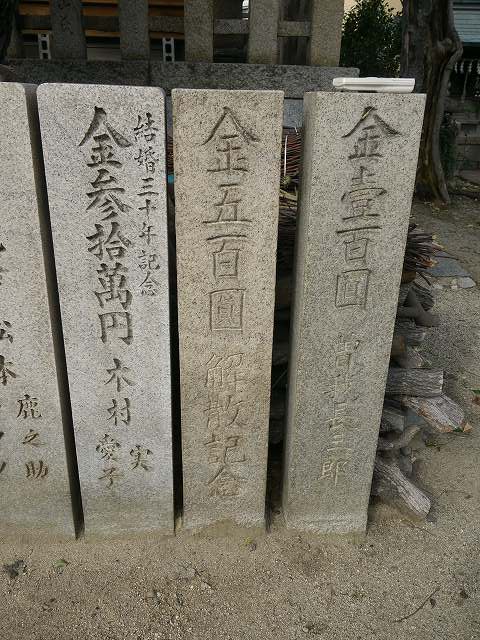 金壹百圓
曽我長三郎
金五百圓
解散記念
結婚三十年記念
金参拾萬円
木村
実
愛子
松本
鹿之助